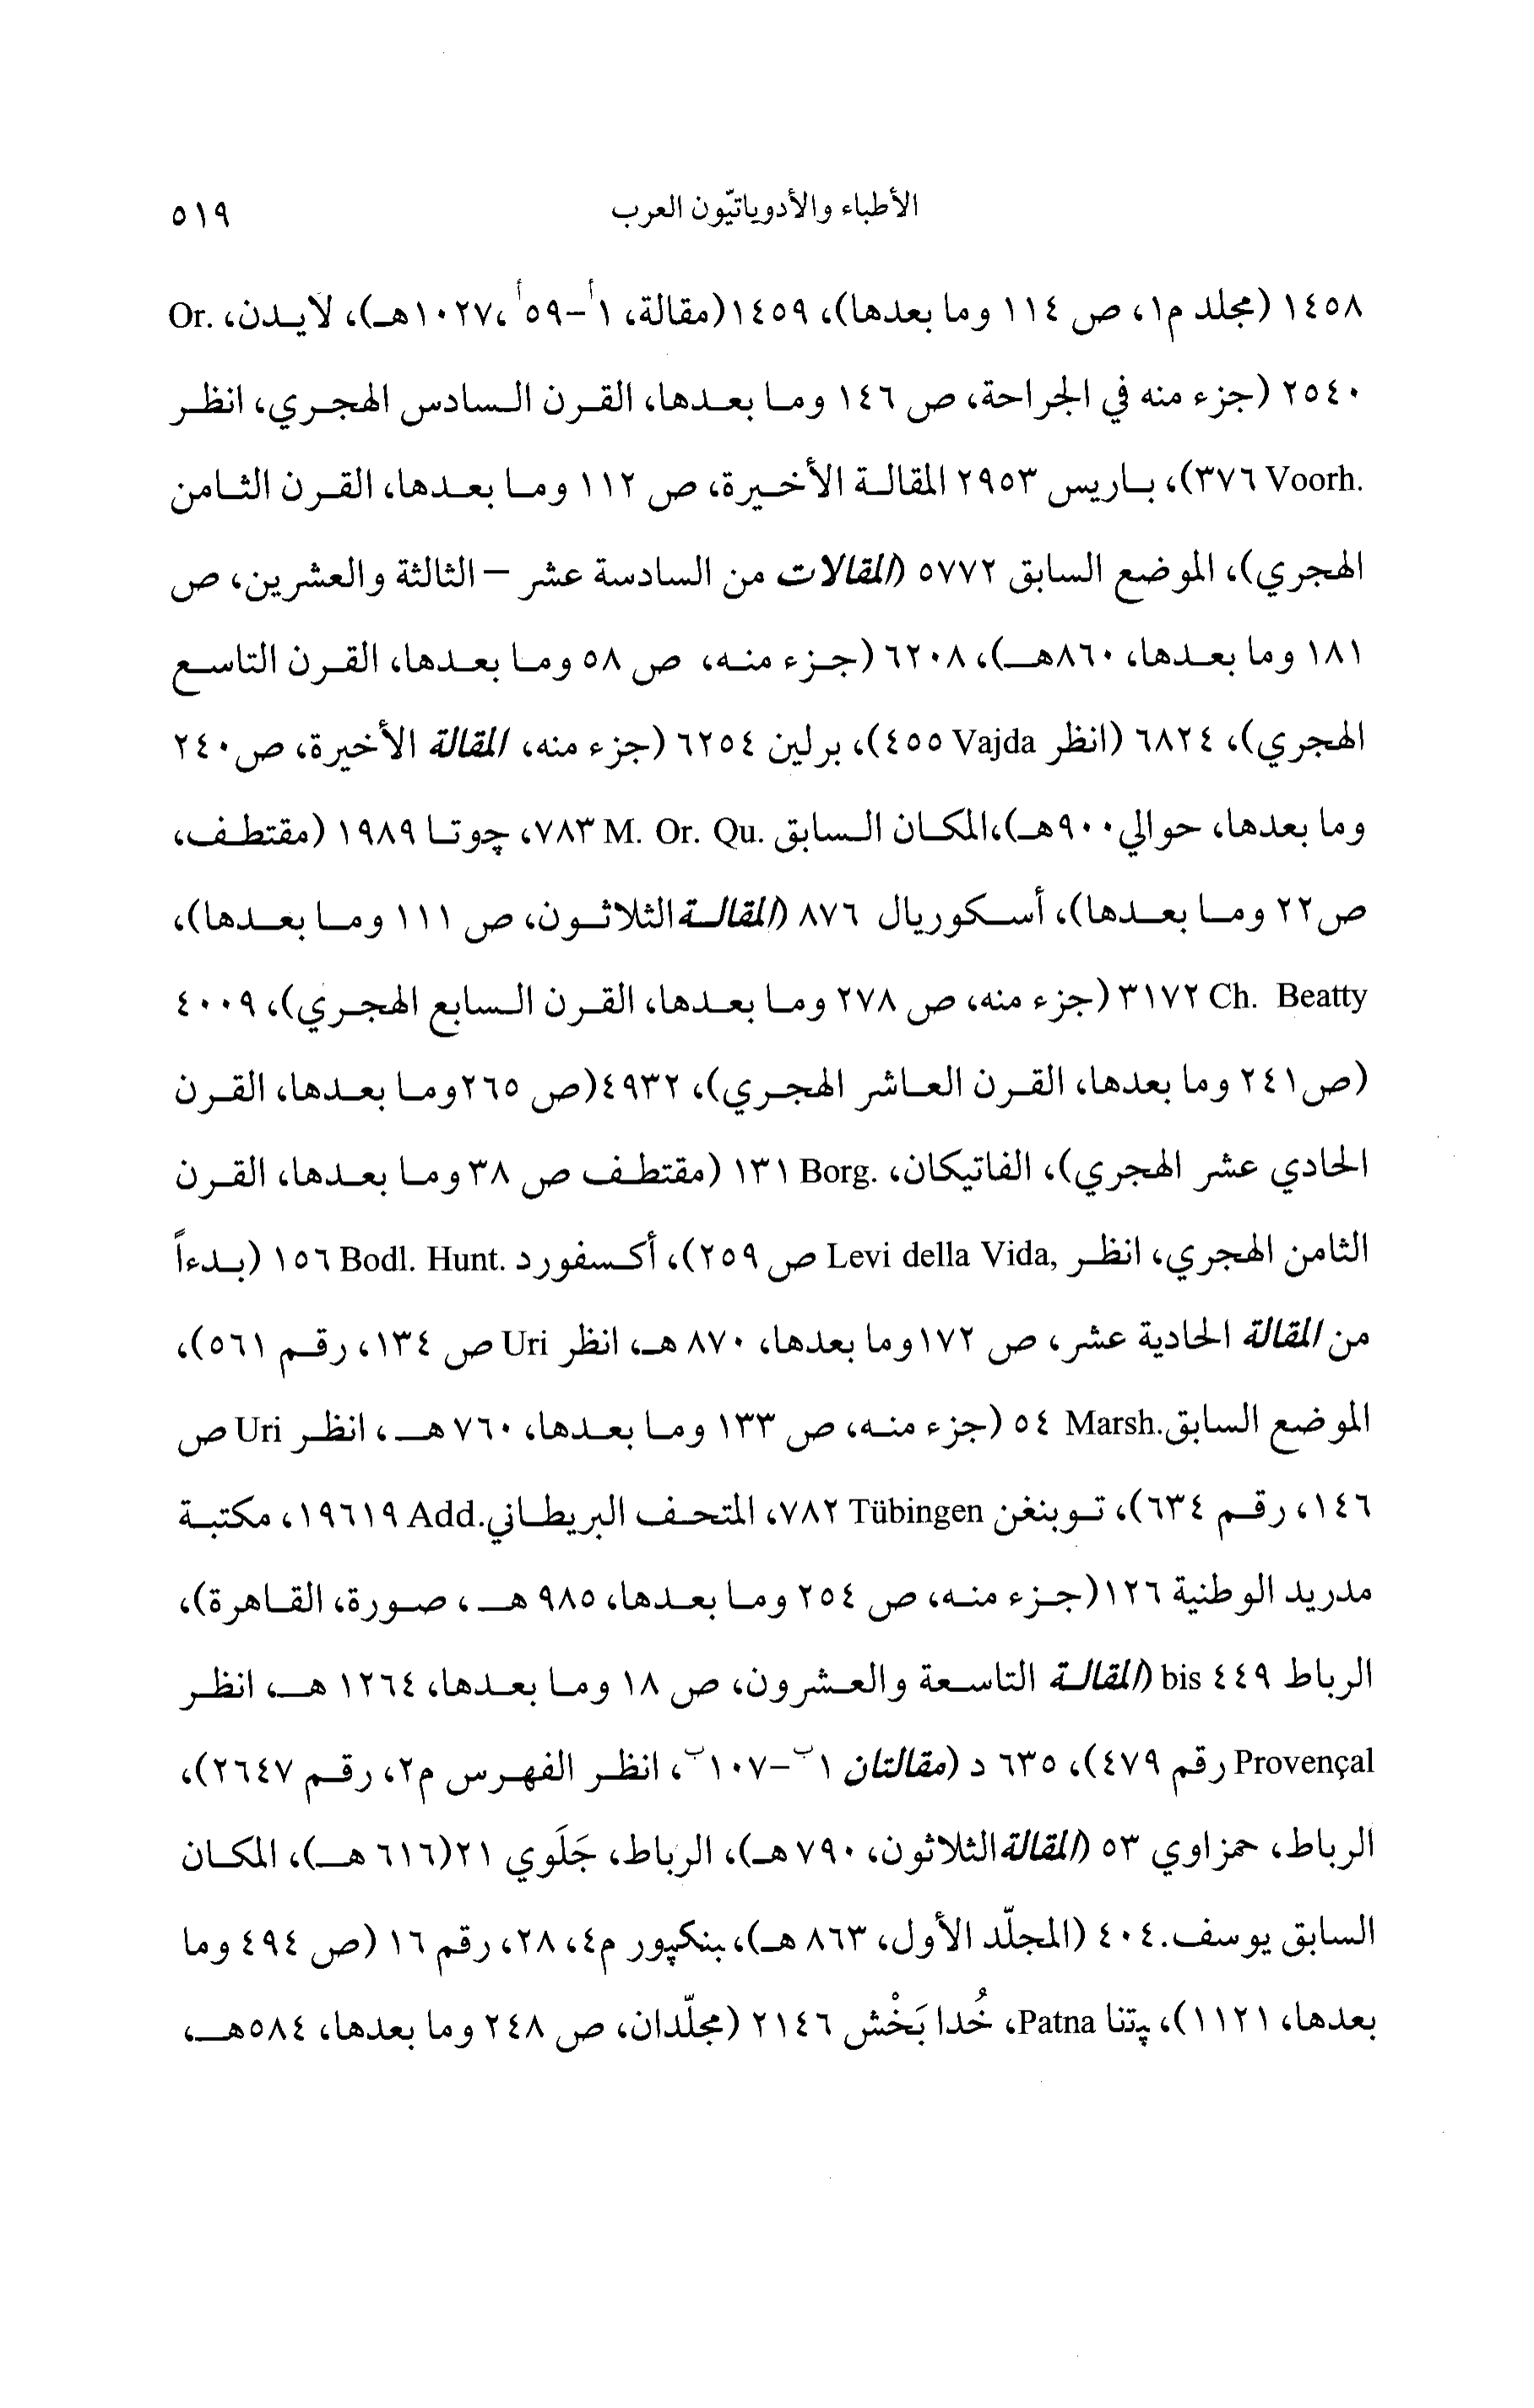 الأطباء والأدوياتيّون العرب ٥١٩
١٤٥٨ (مجلد م١، ص ١١٤ وما بعدها)، ١٤٥٩ (مقالة، ١أ–٥٩أ، ١٠٢٧هـ)، لايدن، Or.
٢٥٤٠ (جزء منه في الجراحة، ص ١٤٦ وما بعدها، القرن السادس الهجري، انظر
Voorh. ٣٧٦)، باريس ٢٩٥٣ المقالة الأخيرة، ص ١١٢ وما بعدها، القرن الثامن
الهجري)، الموضع السابق ٥٧٧٢ (المقالات من السادسة عشر – الثالثة والعشرين، ص
١٨١ وما بعدها، ٨٦٠هـ)، ٦٢٠٨ (جزء منه، ص ٥٨ وما بعدها، القرن التاسع
الهجري)، ٦٨٢٤ (انظر Vajda ٤٥٥)، برلين ٦٢٥٤ (جزء منه، المقالة الأخيرة، ص٢٤٠
وما بعدها، حوالي ٩٠٠هـ)،المكان السابق M. Or. Qu. ٧٨٣، چوتا ١٩٨٩ (مقتطف،
ص٢٢ وما بعدها)، أسكوريال ٨٧٦ (المقالة الثلاثون، ص ١١١ وما بعدها)،
Ch. Beatty ٣١٧٢ (جزء منه، ص ٢٧٨ وما بعدها، القرن السابع الهجري)، ٤٠٠٩
(ص٢٤١ وما بعدها، القرن العاشر الهجري)، ٤٩٣٢ (ص ٢٦٥ وما بعدها، القرن
الحادي عشر الهجري)، الفاتيكان، Borg. ١٣١ (مقتطف ص ٣٨ وما بعدها، القرن
الثامن الهجري، انظر Levi della Vida, ص ٢٥٩)، أكسفورد Bodl. Hunt. ١٥٦ (بدءاً
من المقالة الحادية عشر، ص ١٧٢ وما بعدها، ٨٧٠ هـ، انظر Uri ص ١٣٤، رقم ٥٦١)،
الموضع السابق Marsh. ٥٤ (جزء منه، ص ١٣٣ وما بعدها، ٧٦٠ هـ، انظر Uri ص
١٤٦، رقم ٦٣٤)، توبنغن Tübingen ٧٨٢، المتحف البريطاني Add. ١٩٦١٩، مكتبة
مدريد الوطنية ١٢٦ (جزء منه، ص ٢٥٤ وما بعدها، ٩٨٥ هـ، صورة، القاهرة)،
الرباط ٤٤٩ bis (المقالة التاسعة والعشرون، ص ١٨ وما بعدها، ١٢٦٤ هـ، انظر
Provençal رقم ٤٧٩)، ٦٣٥ د (مقالتان ١ب–١٠٧ب، انظر الفهرس م٢، رقم ٢٦٤٧)،
الرباط، حمزاوي ٥٣ (المقالة الثلاثون، ٧٩٠ هـ)، الرباط، جَلَوي ٢١ (٦١٦ هـ)، المكان
السابق يوسف. ٤٠٤ (المجلّد الأول، ٨٦٣ هـ)، بنكپور م٤، ٢٨، رقم ١٦ (ص ٤٩٤ وما
بعدها، ١١٢١)، پتنا Patna، خُدا بَخْش ٢١٤٦ (مجلّدان، ص ٢٤٨ وما بعدها، ٥٨٤هـ،